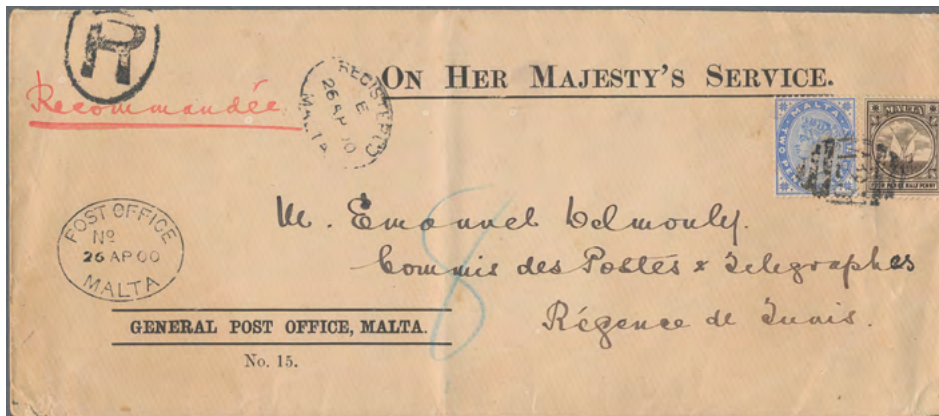 R
Recommandée
REGISTERED
E
26 AP 00
MALTA
ON HER MAJESTY'S SERVICE.
MALTA
TWO PENCE HALF PENNY
MALTA
FOUR PENCE HALF PENNY
POST OFFICE
No
26 AP 00
MALTA
M. Emanuel Delmouly.
Commis des Postes & Telegraphes
Régence de Tunis.
8
GENERAL POST OFFICE, MALTA.
No. 15.